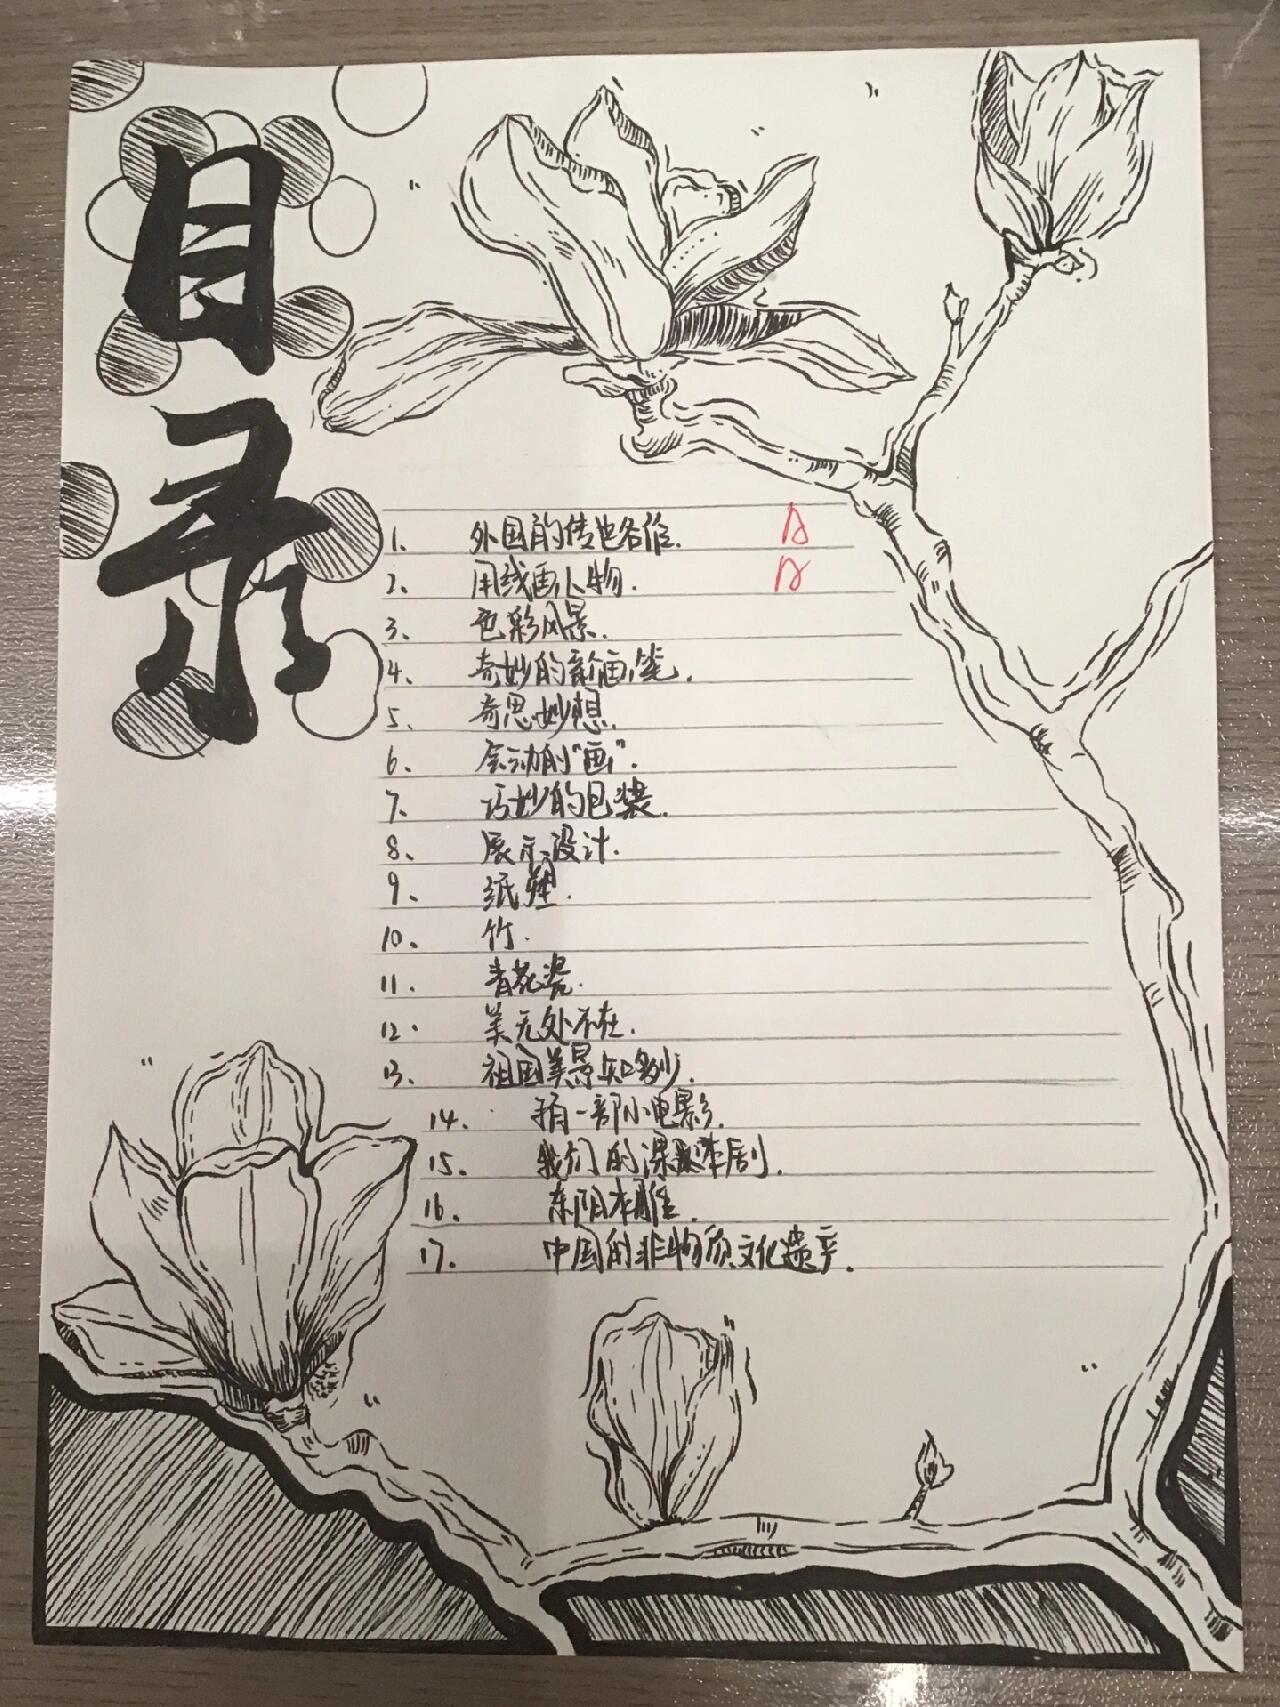 目录
1. 外国的传世名作. A
2. 用线画人物. A
3. 色彩风景.
4. 奇妙的新画笔.
5. 奇思妙想.
6. 会动的"画".
7. 巧妙的包装.
8. 展示设计.
9. 纸塑.
10. 竹.
11. 青花瓷.
12. 美无处不在.
13. 祖国美景知多少.
14. 拍一部小电影.
15. 我们的课本剧.
16. 东阳木雕.
17. 中国的非物质文化遗产.